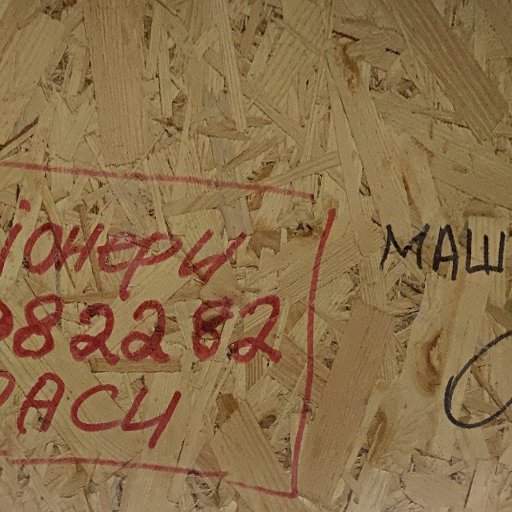 іонери
982262
РАСИ
МАШ